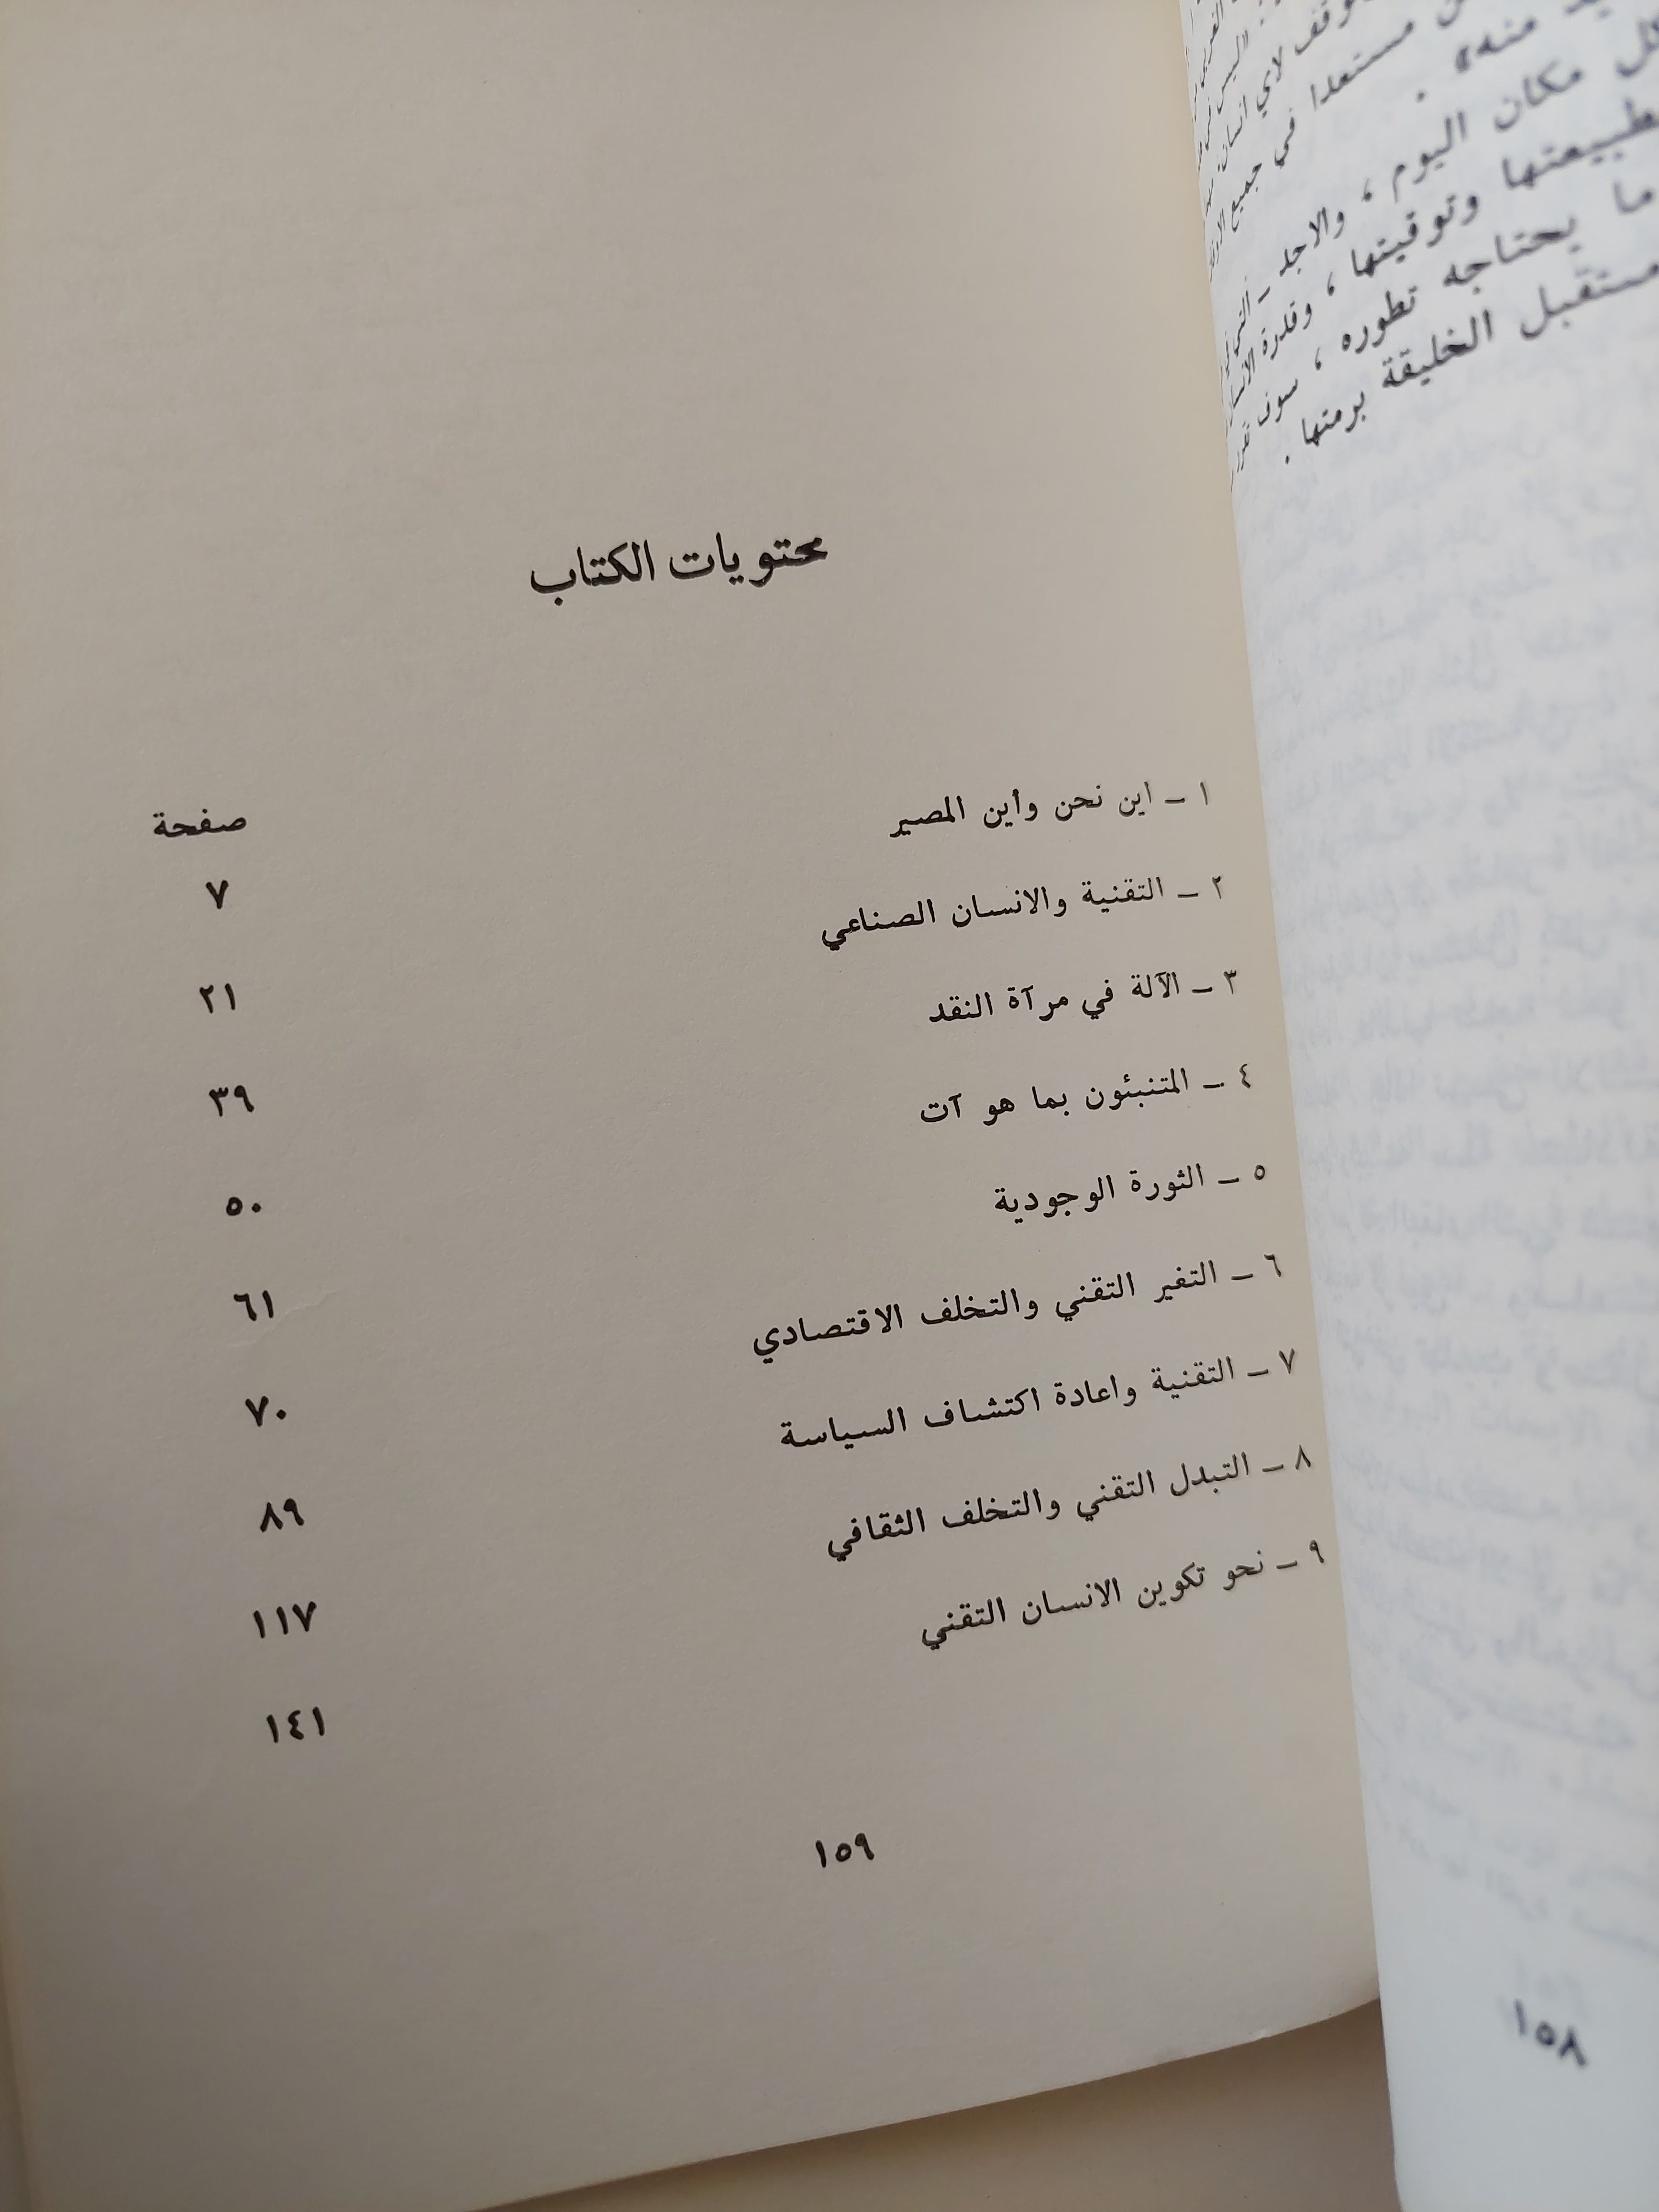 محتويات الكتاب
صفحة
١ ـ اين نحن وأين المصير ٧
٢ ـ التقنية والانسان الصناعي ٢١
٣ ـ الآلة في مرآة النقد ٣٩
٤ ـ المتنبئون بما هو آت ٥٠
٥ ـ الثورة الوجودية ٦١
٦ ـ التغير التقني والتخلف الاقتصادي ٧٠
٧ ـ التقنية واعادة اكتشاف السياسة ٨٩
٨ ـ التبدل التقني والتخلف الثقافي ١١٧
٩ ـ نحو تكوين الانسان التقني ١٤١
١٥٩
منه» .
مستعدا في جميع
مكان اليوم ، والاجد ـ التي
طبيعتها وتوقيتها ، وقدرة الانسان
ما يحتاجه تطوره ، سوف تقرر
مستقبل الخليقة برمتها .
١٥٨